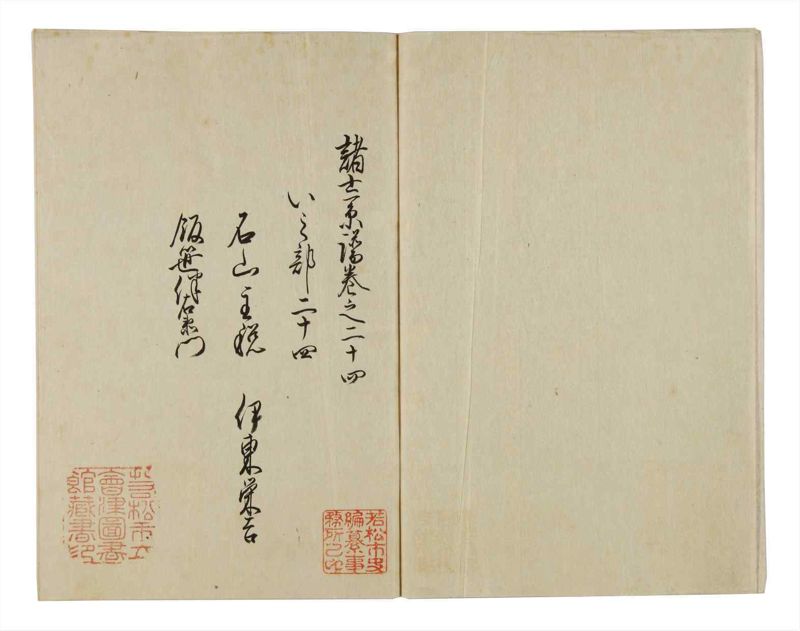 諸士系譜巻之二十四
い之部二十四
石山主税　伊東栄吉
飯笹伴右衛門
若松市史
編纂事
務所之印
若松市立
會津圖書
館藏書印